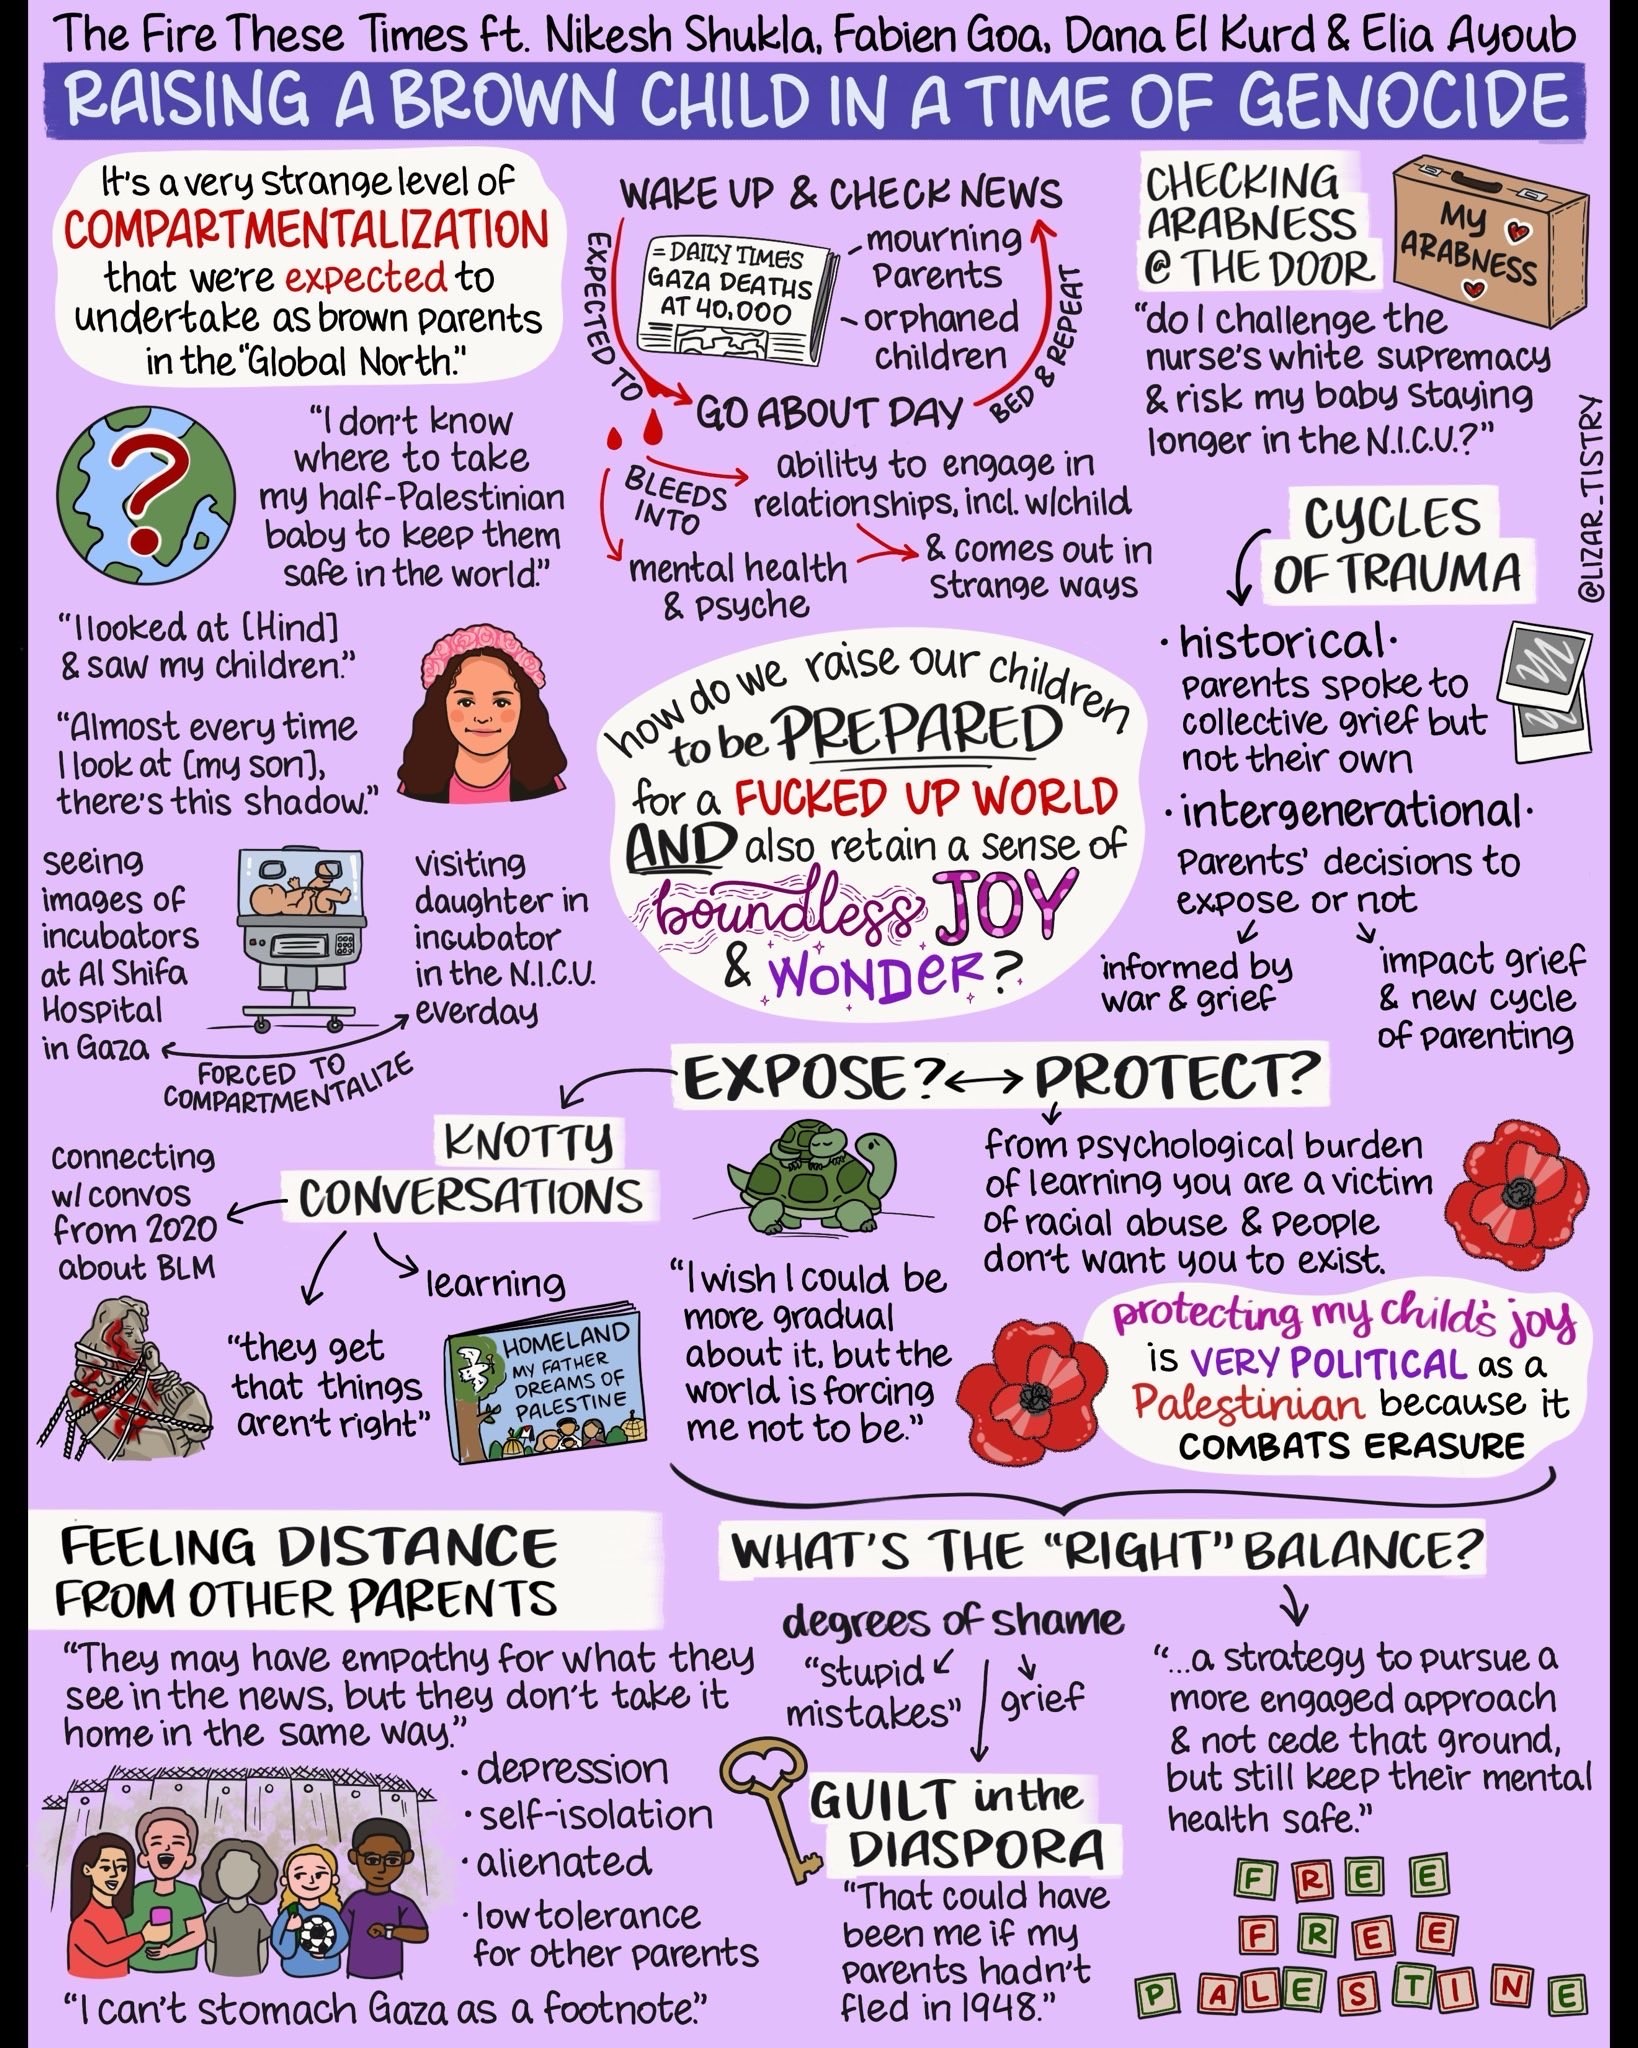 The Fire These Times ft. Nikesh Shukla, Fabien Goa, Dana El Kurd & Elia Ayoub
RAISING A BROWN CHILD IN A TIME OF GENOCIDE
It's a very strange level of
COMPARTMENTALIZATION
that we're expected to
undertake as brown parents
in the "Global North."
WAKE UP & CHECK NEWS
EXPECTED TO
= DAILY TIMES
GAZA DEATHS
AT 40,000
mourning
parents
orphaned
children
BED & REPEAT
GO ABOUT DAY
BLEEDS
INTO
ability to engage in
relationships, incl. w/child
mental health
& psyche
& comes out in
strange ways
CHECKING
ARABNESS
@ THE DOOR
MY
ARABNESS
"do I challenge the
nurse's white supremacy
& risk my baby staying
longer in the N.I.C.U.?"
@LIZAR_TISTRY
?
"I don't know
where to take
my half-Palestinian
baby to keep them
safe in the world."
"I looked at [Hind]
& saw my children."
"Almost every time
I look at [my son],
there's this shadow."
how do we raise our children
to be PREPARED
for a FUCKED UP WORLD
AND also retain a sense of
boundless JOY
& WONDER?
CYCLES
OF TRAUMA
• historical •
parents spoke to
collective grief but
not their own
• intergenerational •
parents' decisions to
expose or not
informed by
war & grief
impact grief
& new cycle
of parenting
seeing
images of
incubators
at Al Shifa
Hospital
in Gaza
visiting
daughter in
incubator
in the N.I.C.U.
everday
FORCED TO
COMPARTMENTALIZE
EXPOSE? PROTECT?
KNOTTY
CONVERSATIONS
connecting
w/ convos
from 2020
about BLM
"they get
that things
aren't right"
learning
HOMELAND
MY FATHER
DREAMS OF
PALESTINE
"I wish I could be
more gradual
about it, but the
world is forcing
me not to be."
from psychological burden
of learning you are a victim
of racial abuse & people
don't want you to exist.
protecting my child's joy
is VERY POLITICAL as a
Palestinian because it
COMBATS ERASURE
FEELING DISTANCE
FROM OTHER PARENTS
"They may have empathy for what they
see in the news, but they don't take it
home in the same way."
• depression
• self-isolation
• alienated
• low tolerance
for other parents
"I can't stomach Gaza as a footnote."
WHAT'S THE "RIGHT" BALANCE?
degrees of shame
"stupid
mistakes"
grief
GUILT in the
DIASPORA
"That could have
been me if my
parents hadn't
fled in 1948."
"...a strategy to pursue a
more engaged approach
& not cede that ground,
but still keep their mental
health safe."
FREE
FREE
PALESTINE